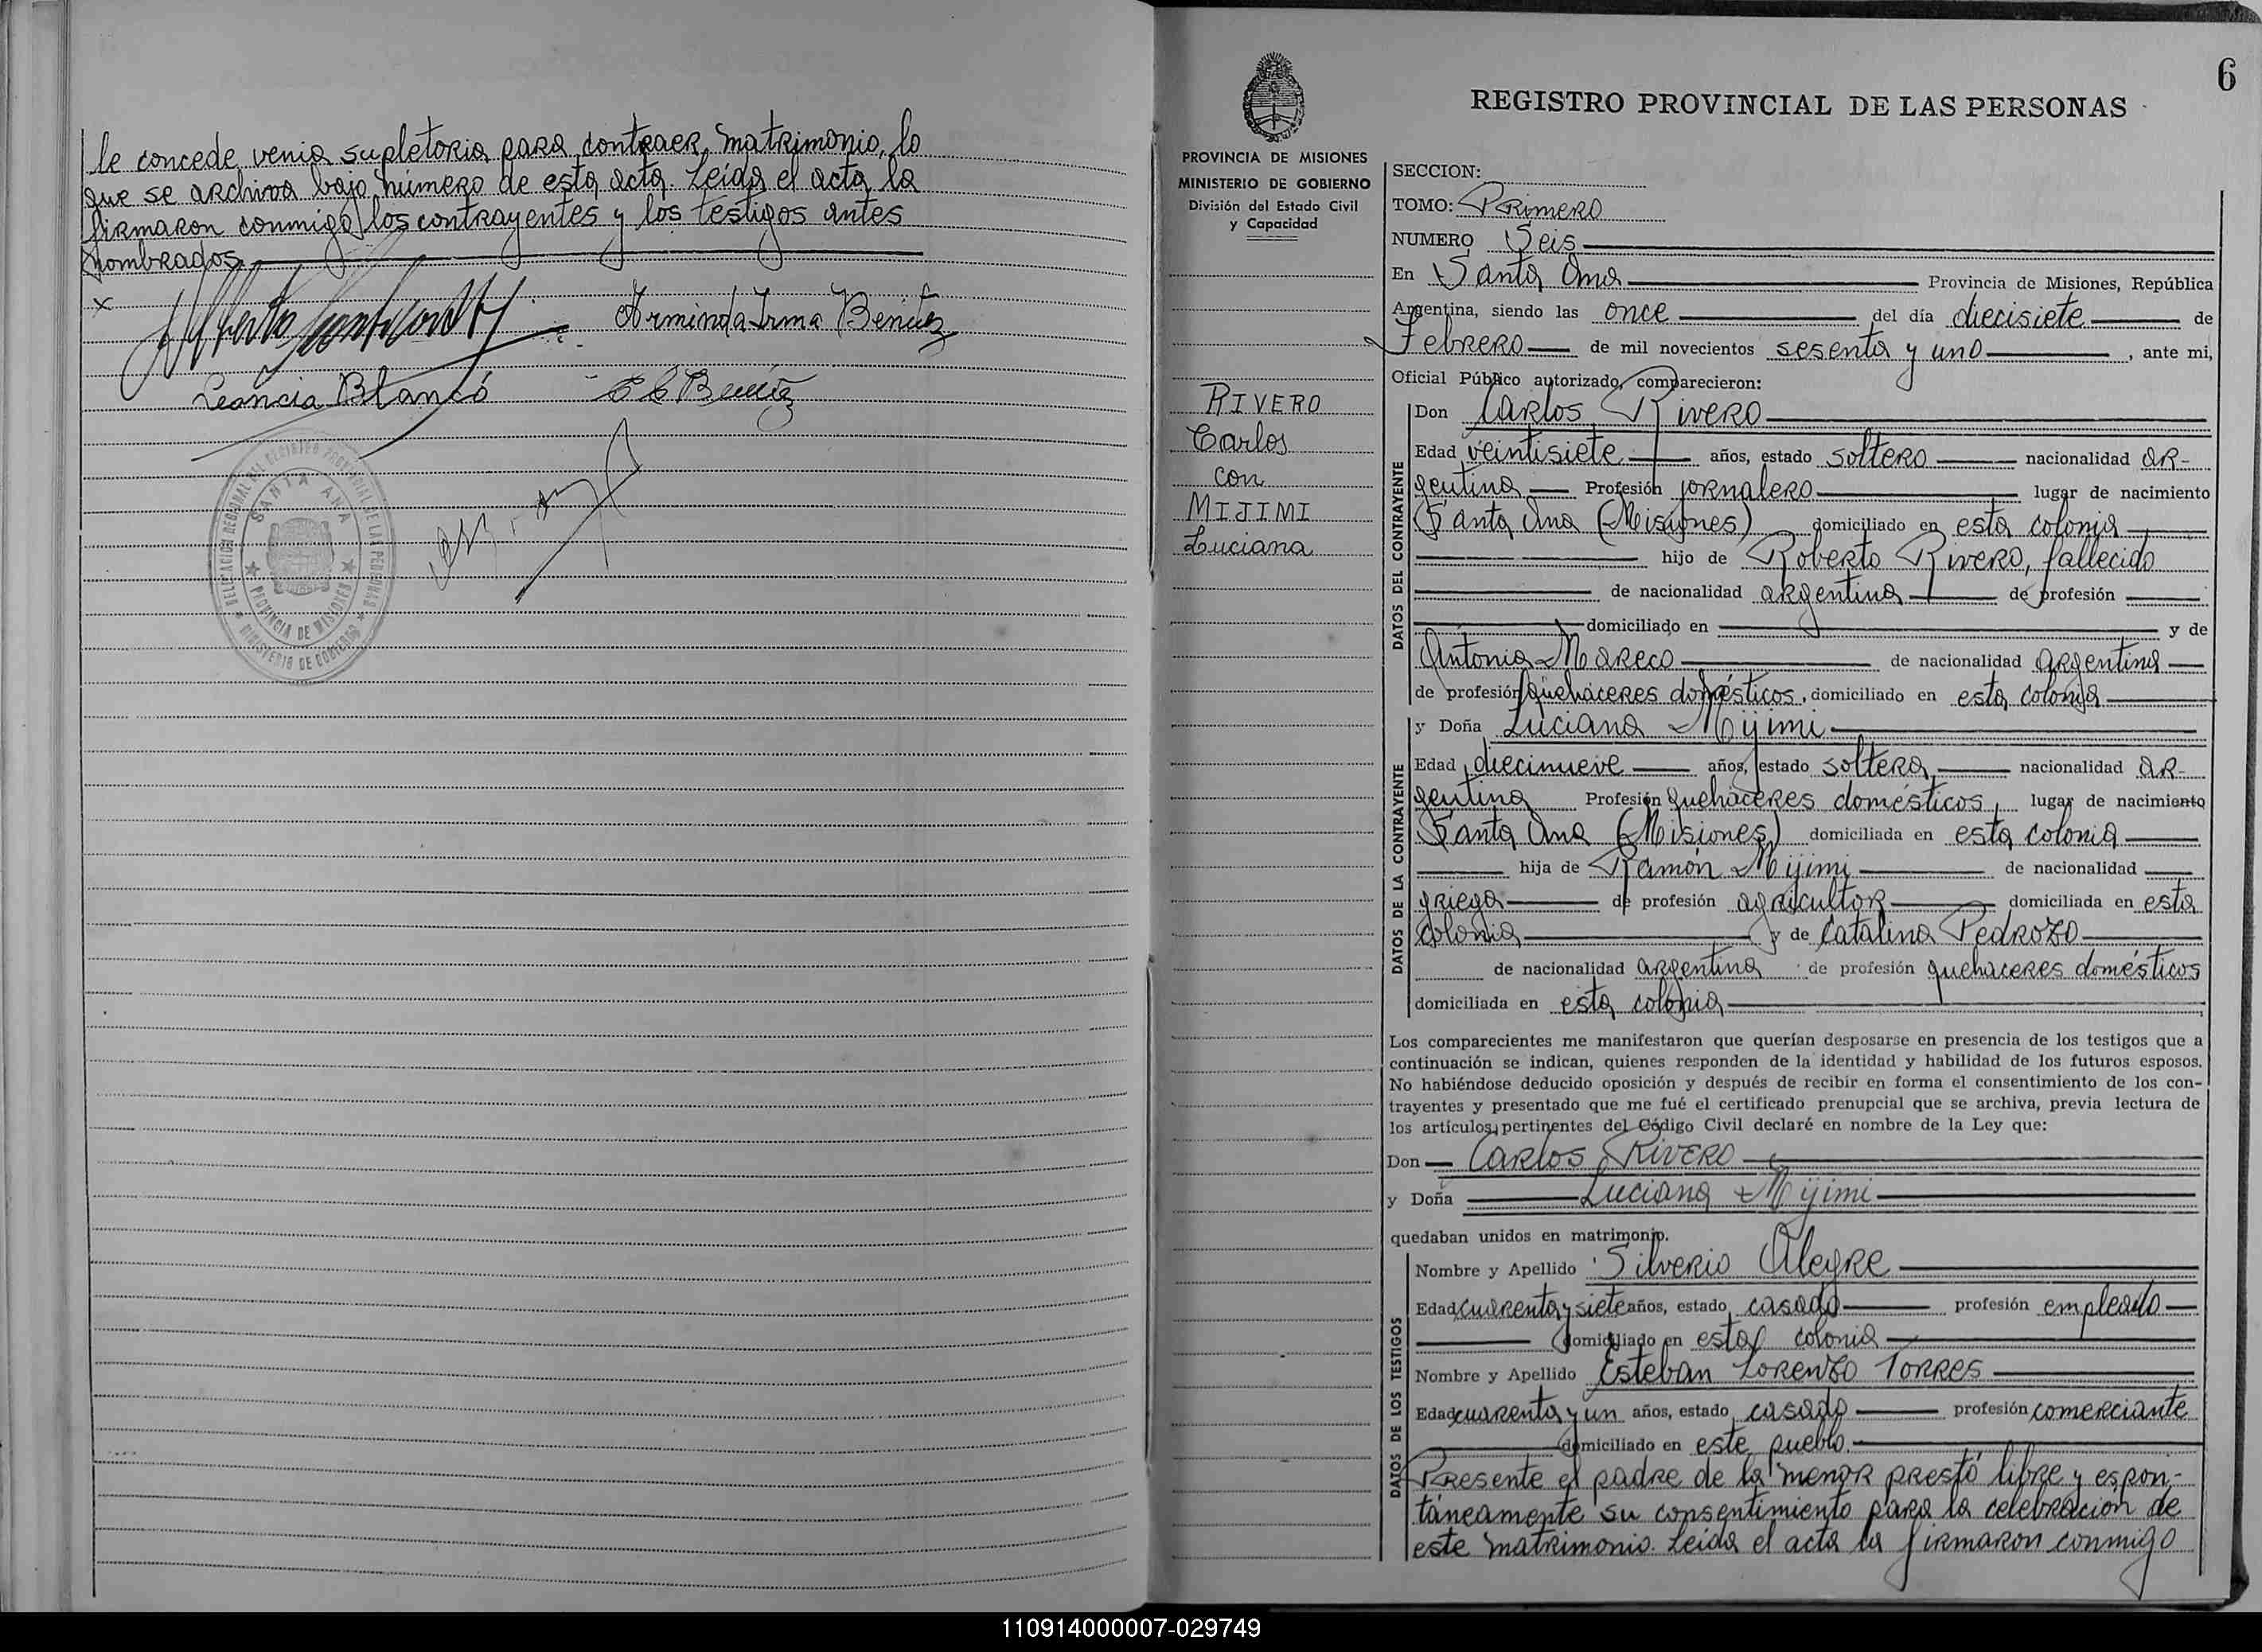 le concede venia supletoria para contraer matrimonio, lo
que se archiva bajo número de esta acta. Leída el acta la
firmaron conmigo los contrayentes y los testigos antes
nombrados
x
Arminda Irma Benitez
Leoncia Blanco
DELEGACION REGIONAL DEL REGISTRO PROVINCIAL DE LAS PERSONAS
SANTA ANA
PROVINCIA DE MISIONES
MINISTERIO DE GOBIERNO
6
REGISTRO PROVINCIAL DE LAS PERSONAS
PROVINCIA DE MISIONES
MINISTERIO DE GOBIERNO
División del Estado Civil
y Capacidad
RIVERO
Carlos
con
MIJIMI
Luciana
SECCION:
TOMO: Primero
NUMERO Seis
En Santa Ana Provincia de Misiones, República
Argentina, siendo las once del día diecisiete de
Febrero de mil novecientos sesenta y uno, ante mi,
Oficial Público autorizado, comparecieron:
DATOS DEL CONTRAYENTE
Don Carlos Rivero
Edad veintisiete años, estado soltero nacionalidad ar-
gentina Profesión jornalero lugar de nacimiento
Santa Ana (Misiones) domiciliado en esta colonia
hijo de Roberto Rivero, fallecido
de nacionalidad argentina de profesión
domiciliado en y de
Antonia Mareco de nacionalidad argentina
de profesión quehaceres domésticos, domiciliado en esta colonia
DATOS DE LA CONTRAYENTE
y Doña Luciana Mijimi
Edad diecinueve años, estado soltera nacionalidad ar-
gentina Profesión quehaceres domésticos, lugar de nacimiento
Santa Ana (Misiones) domiciliada en esta colonia
hija de Ramón Mijimi de nacionalidad
griega de profesión agricultor domiciliada en esta
colonia y de Catalina Pedrozo
de nacionalidad argentina de profesión quehaceres domésticos
domiciliada en esta colonia
Los comparecientes me manifestaron que querían desposarse en presencia de los testigos que a
continuación se indican, quienes responden de la identidad y habilidad de los futuros esposos.
No habiéndose deducido oposición y después de recibir en forma el consentimiento de los con-
trayentes y presentado que me fué el certificado prenupcial que se archiva, previa lectura de
los artículos pertinentes del Código Civil declaré en nombre de la Ley que:
Don Carlos Rivero
y Doña Luciana Mijimi
quedaban unidos en matrimonio.
DATOS DE LOS TESTIGOS
Nombre y Apellido Silverio Alegre
Edad cuarenta y siete años, estado casado profesión empleado
domiciliado en esta colonia
Nombre y Apellido Esteban Lorenzo Torres
Edad cuarenta y un años, estado casado profesión comerciante
domiciliado en este pueblo.
Presente el padre de la menor prestó libre y espon-
táneamente su consentimiento para la celebración de
este matrimonio. Leída el acta la firmaron conmigo
110914000007-029749